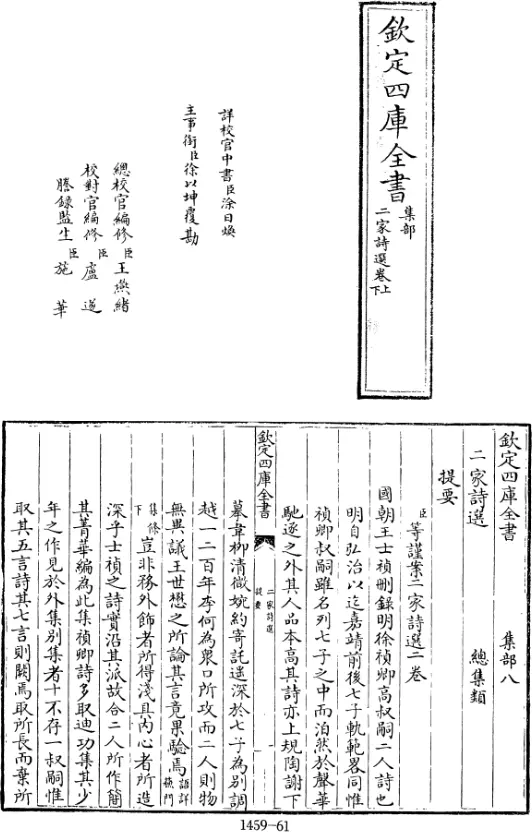 欽定四庫全書
集部
二家詩選卷上下
詳校官中書臣涂日煥
主事銜臣徐以坤覆勘
總校官編修臣王燕緒
校對官編修臣盧遂
謄錄監生臣施華
欽定四庫全書
集部八
二家詩選
總集類
提要
臣等謹案二家詩選二卷
國朝王士禎刪錄明徐禎卿高叔嗣二人詩也
明自弘治以迄嘉靖前後七子軌範畧同惟
禎卿叔嗣雖名列七子之中而泊然於聲華
馳逐之外其人品本高其詩亦上規陶謝下
欽定四庫全書
二家詩選
提要
一
摹韋柳清微婉約寄託遥深於七子為別調
越一二百年李何為衆口所攻而二人則物
無異議王世懋之所論其言竟果驗焉語詳蘇門
集條下豈非移外飾者所得淺且内心者所造
深乎士禎之詩實沿其派故合二人所作簡
其菁華編為此集禎卿詩多取迪功集其少
年之作見於外集別集者十不存一叔嗣惟
取其五言詩其七言則闕焉取所長而棄所
1459-61